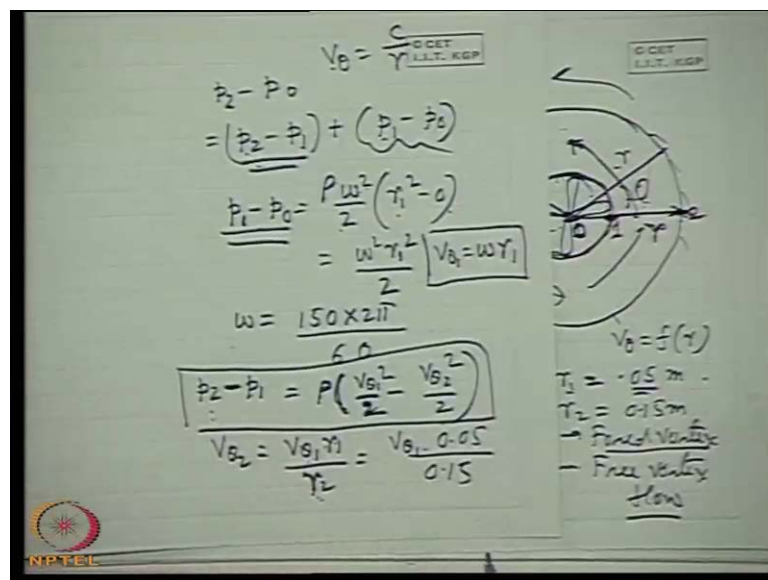 V_θ = c/r
© CET
I.I.T. KGP
p₂ - p₀
= (p₂ - p₁) + (p₁ - p₀)
p₁ - p₀ = ρω²/2 (r₁² - 0)
= ω² r₁²/2
V_θ₁ = ω r₁
ω = 150 × 2π / 60
p₂ - p₁ = ρ(V_θ₁²/2 - V_θ₂²/2)
V_θ₂ = V_θ₁ r₁ / r₂ = V_θ₁ 0.05 / 0.15
© CET
I.I.T. KGP
r
θ
0
1
2
r
V_θ = f(r)
r₁ = .05 m
r₂ = 0.15 m
→ Forced Vortex
- Free Vortex
flow
NPTEL